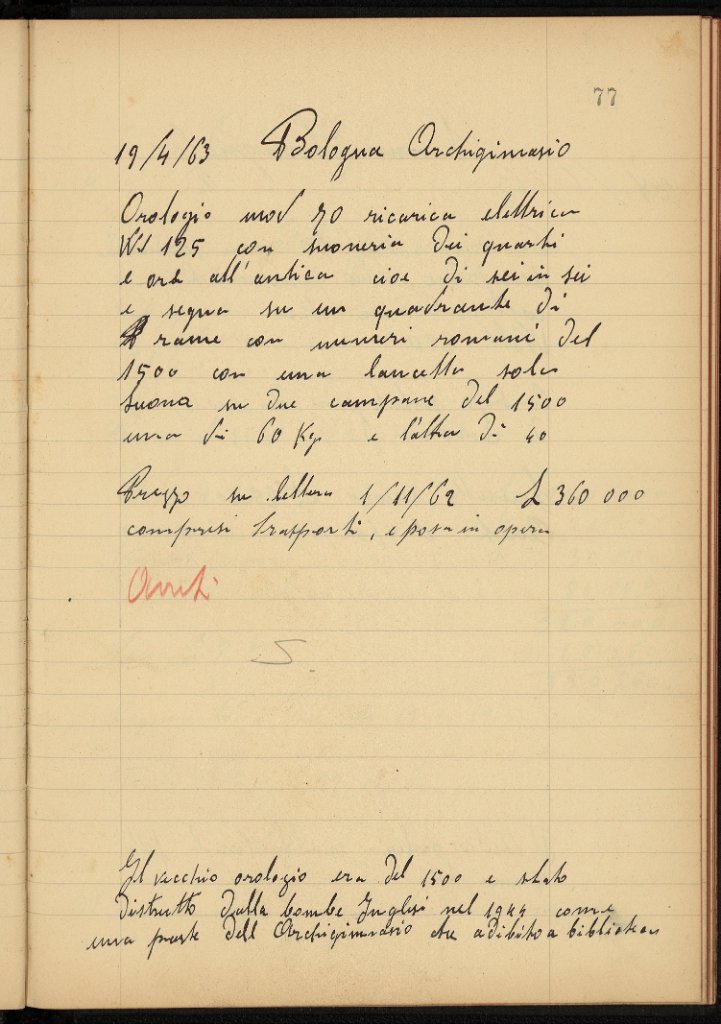 77
19/4/63 Bologna Archiginnasio
Orologio mod 70 ricarica elettrica
125 con suoneria dei quarti
e ore all'antica cioe di sei in sei
e segna su un quadrante di
rame con numeri romani del
1500 con una lancetta sola
suona su due campane del 1500
una di 60 Kg e l'altra di 40
Prezzo su lettera 1/11/62 £ 360 000
compresi trasporti, e posa in opera
Il vecchio orologio era del 1500 e stato
distrutto dalla bombe Inglesi nel 1944 come
una parte dell Archiginnasio che adibito a biblioteca